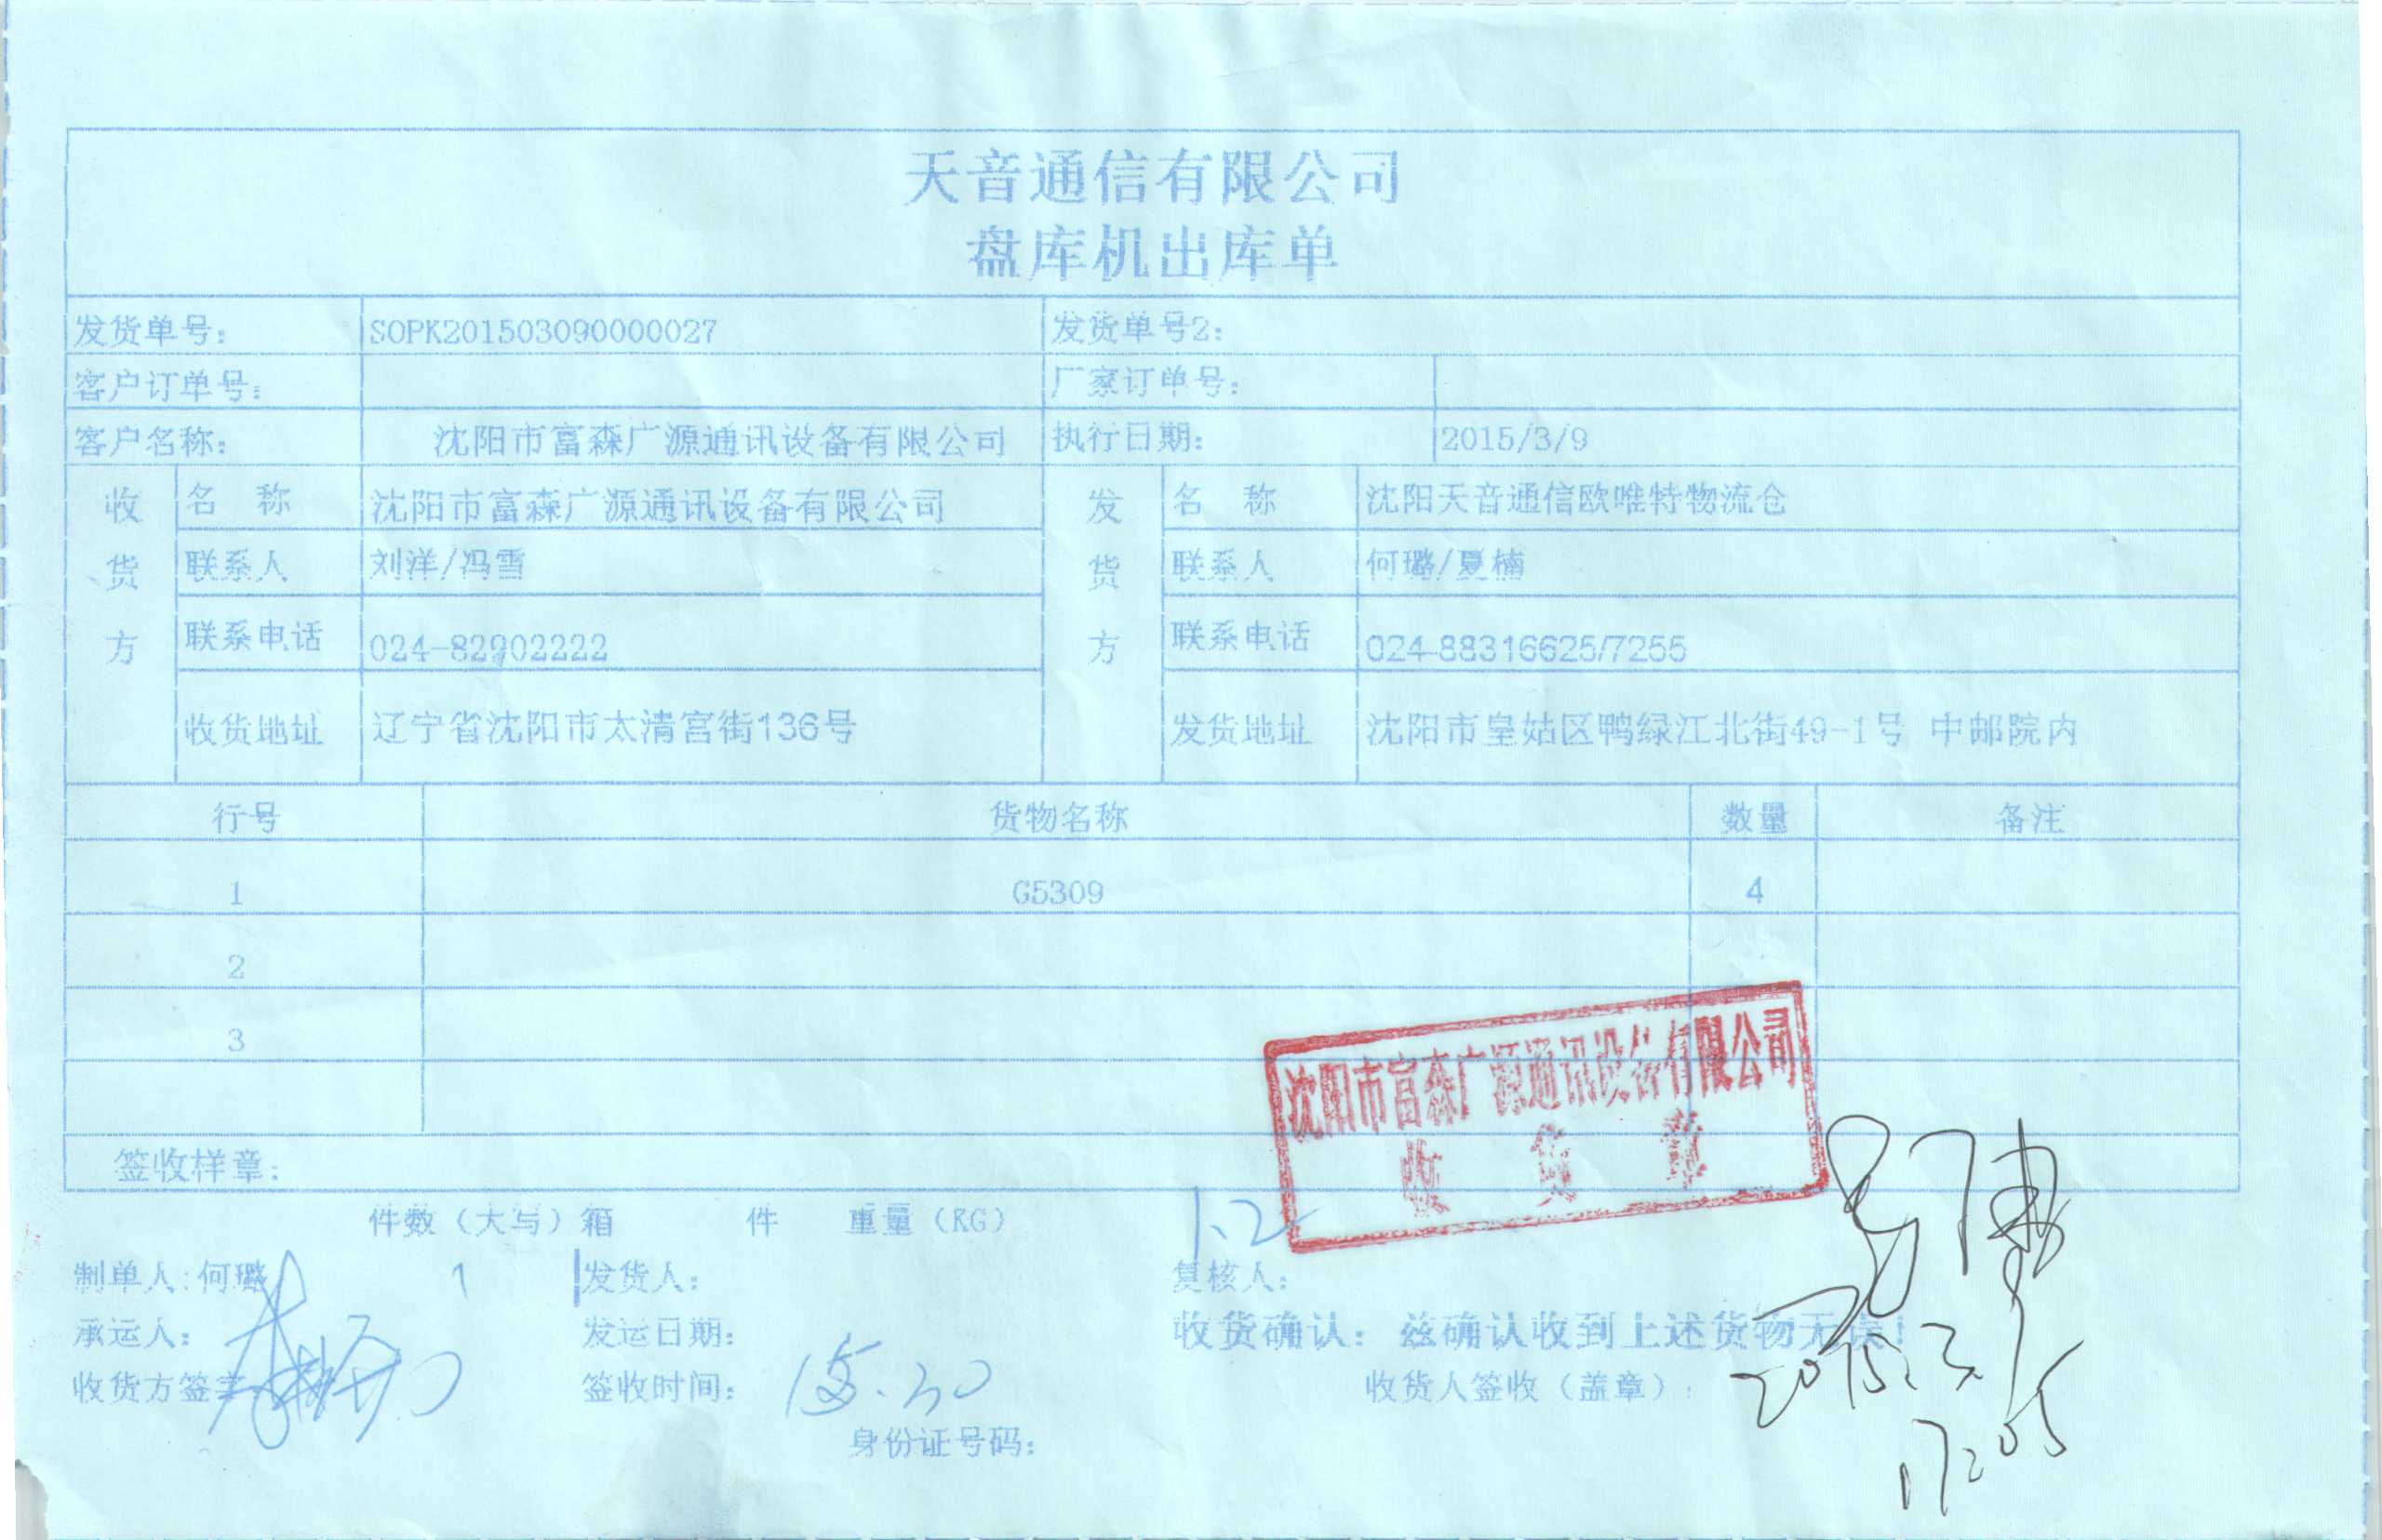 天音通信有限公司
盘库机出库单
发货单号： SOPK201503090000027 发货单号2：
客户订单号： 厂家订单号：
客户名称： 沈阳市富森广源通讯设备有限公司 执行日期： 2015/3/9
收货方 发货方
名 称 沈阳市富森广源通讯设备有限公司 名 称 沈阳天音通信欧唯特物流仓
联系人 刘洋/冯雪 联系人 何璐/夏楠
联系电话 024-82902222 联系电话 024-88316625/7255
收货地址 辽宁省沈阳市太清宫街136号 发货地址 沈阳市皇姑区鸭绿江北街49-1号 中邮院内
行号 货物名称 数量 备注
1 G5309 4
2
3
沈阳市富森广源通讯设备有限公司
收 货 章
签收样章：
件数（大写）箱 件 重量（KG） 1.2
制单人:何璐 1 发货人： 复核人：
承运人： 发运日期： 收货确认：兹确认收到上述货物无误！
收货方签章 签收时间： 15.30 收货人签收（盖章）：
2015.3.9
17:05
身份证号码：